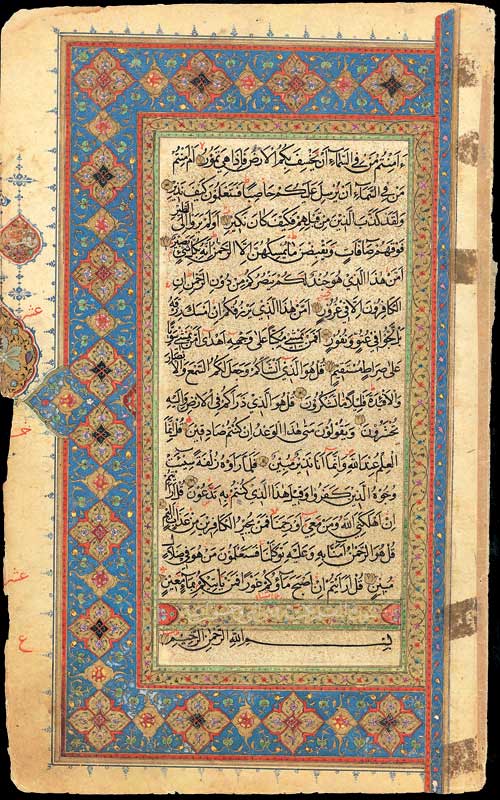 ءَاَمِنْتُمْ مَنْ فِي السَّمَاءِ اَنْ يَخْسِفَ بِكُمُ الْاَرْضَ فَاِذَا هِيَ تَمُورُ اَمْ اَمِنْتُمْ
مَنْ فِي السَّمَاءِ اَنْ يُرْسِلَ عَلَيْكُمْ حَاصِبًا فَسَتَعْلَمُونَ كَيْفَ نَذِيرِ
وَلَقَدْ كَذَّبَ الَّذِينَ مِنْ قَبْلِهِمْ فَكَيْفَ كَانَ نَكِيرِ اَوَلَمْ يَرَوْا اِلَى الطَّيْرِ
فَوْقَهُمْ صَافَّاتٍ وَيَقْبِضْنَ مَا يُمْسِكُهُنَّ اِلَّا الرَّحْمٰنُ اِنَّهُ بِكُلِّ شَيْءٍ بَصِيرٌ
اَمَّنْ هٰذَا الَّذِي هُوَ جُنْدٌ لَكُمْ يَنْصُرُكُمْ مِنْ دُونِ الرَّحْمٰنِ اِنِ
الْكَافِرُونَ اِلَّا فِي غُرُورٍ اَمَّنْ هٰذَا الَّذِي يَرْزُقُكُمْ اِنْ اَمْسَكَ رِزْقَهُ
بَلْ لَجُّوا فِي عُتُوٍّ وَنُفُورٍ اَفَمَنْ يَمْشِي مُكِبًّا عَلَى وَجْهِهِ اَهْدَى اَمَّنْ يَمْشِي سَوِيًّا
عَلَى صِرَاطٍ مُسْتَقِيمٍ قُلْ هُوَ الَّذِي اَنْشَاَكُمْ وَجَعَلَ لَكُمُ السَّمْعَ وَالْاَبْصَارَ
وَالْاَفْئِدَةَ قَلِيلًا مَا تَشْكُرُونَ قُلْ هُوَ الَّذِي ذَرَاَكُمْ فِي الْاَرْضِ وَاِلَيْهِ
تُحْشَرُونَ وَيَقُولُونَ مَتَى هٰذَا الْوَعْدُ اِنْ كُنْتُمْ صَادِقِينَ قُلْ اِنَّمَا
الْعِلْمُ عِنْدَ اللّٰهِ وَاِنَّمَا اَنَا نَذِيرٌ مُبِينٌ فَلَمَّا رَاَوْهُ زُلْفَةً سِيئَتْ
وُجُوهُ الَّذِينَ كَفَرُوا وَقِيلَ هٰذَا الَّذِي كُنْتُمْ بِهِ تَدَّعُونَ قُلْ اَرَاَيْتُمْ
اِنْ اَهْلَكَنِيَ اللّٰهُ وَمَنْ مَعِيَ اَوْ رَحِمَنَا فَمَنْ يُجِيرُ الْكَافِرِينَ مِنْ عَذَابٍ اَلِيمٍ
قُلْ هُوَ الرَّحْمٰنُ اٰمَنَّا بِهِ وَعَلَيْهِ تَوَكَّلْنَا فَسَتَعْلَمُونَ مَنْ هُوَ فِي ضَلَالٍ
مُبِينٍ قُلْ اَرَاَيْتُمْ اِنْ اَصْبَحَ مَاؤُكُمْ غَوْرًا فَمَنْ يَاْتِيكُمْ بِمَاءٍ مَعِينٍ
بِسْمِ اللّٰهِ الرَّحْمٰنِ الرَّحِيمِ
عشر
عشر
ع